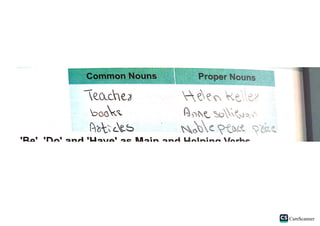 Common Nouns Proper Nouns
Teacher Helen Keller
books Anne sullievan
Articles Noble peace
'Be', 'Do' and 'Have' as Main and Helping Verbs
CS CamScanner